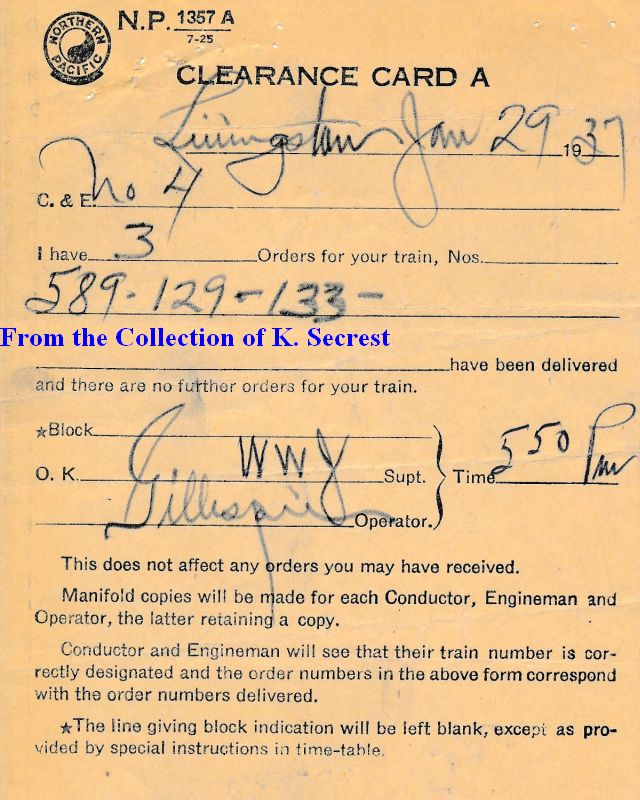 NORTHERN PACIFIC
N.P. 1357 A
7-25
CLEARANCE CARD A
Livingston Jan 29 1937
C. & E. No 4
I have 3 Orders for your train, Nos.
589-129-133-
From the Collection of K. Secrest
have been delivered
and there are no further orders for your train.
★Block
O. K. WWJ Supt. Time 550 Pm
Gillespie Operator.
This does not affect any orders you may have received.
Manifold copies will be made for each Conductor, Engineman and
Operator, the latter retaining a copy.
Conductor and Engineman will see that their train number is cor-
rectly designated and the order numbers in the above form correspond
with the order numbers delivered.
★The line giving block indication will be left blank, except as pro-
vided by special instructions in time-table.